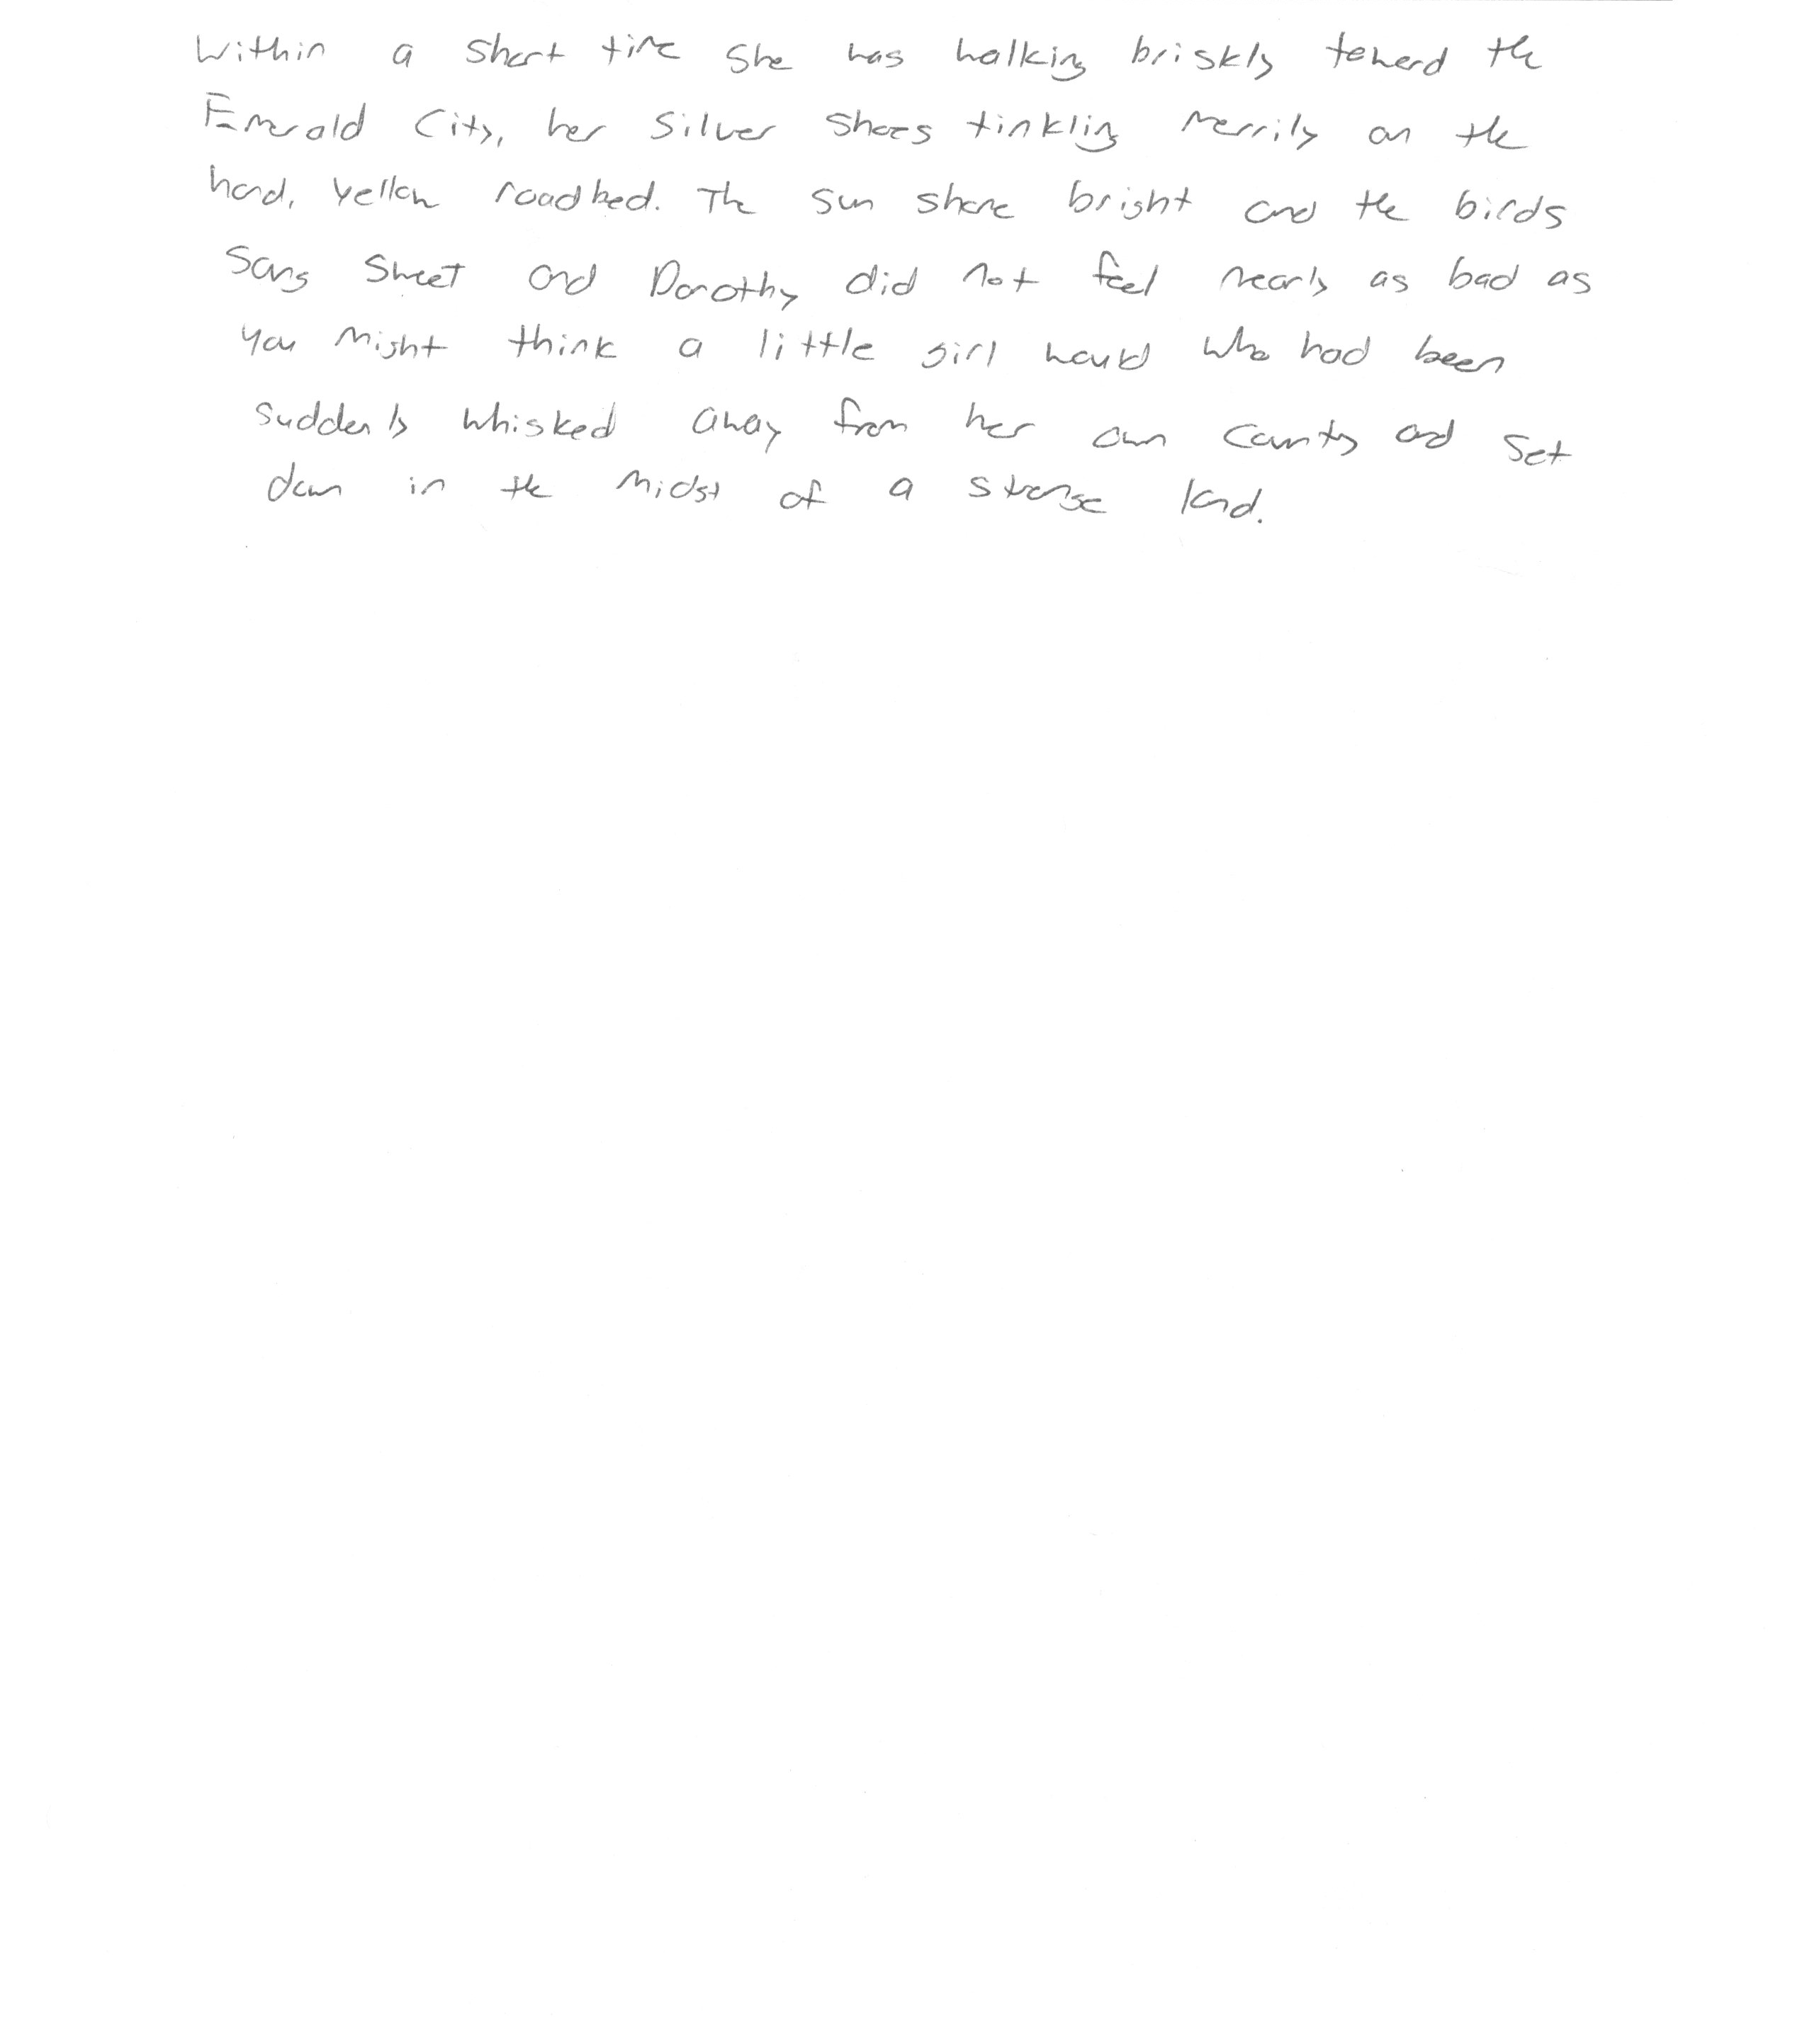 Within a short time she was walking briskly toward the
Emerald City, her Silver Shoes tinkling merrily on the
hard, yellow roadbed. The sun shone bright and the birds
sang sweet and Dorothy did not feel nearly as bad as
you might think a little girl would who had been
suddenly whisked away from her own country and set
down in the midst of a strange land.